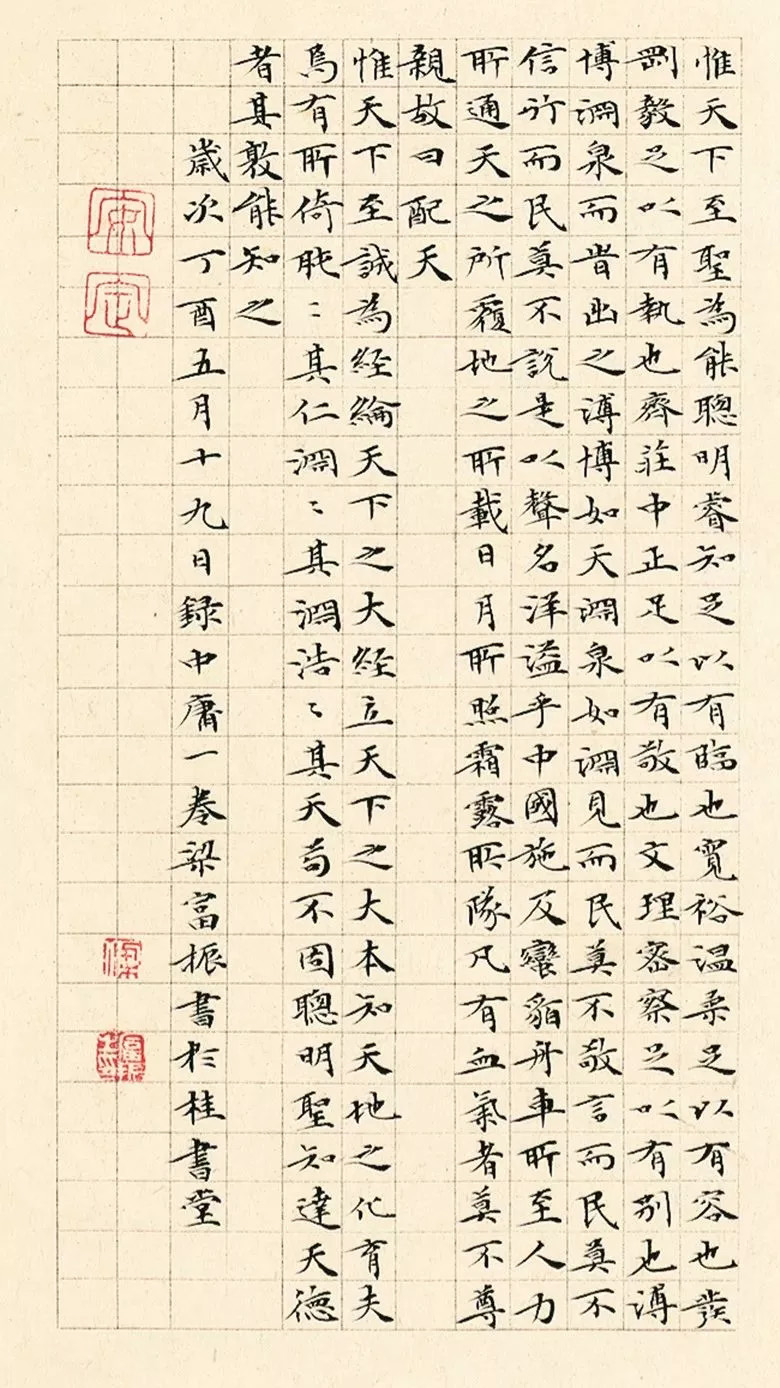 惟天下至聖為能聰明睿知足以有臨也寬裕温柔足以有容也發
剛毅足以有執也齊莊中正足以有敬也文理密察足以有別也溥
博淵泉而時出之溥博如天淵泉如淵見而民莫不敬言而民莫不
信行而民莫不說是以聲名洋溢乎中國施及蠻貊舟車所至人力
所通天之所覆地之所載日月所照霜露所隊凡有血氣者莫不尊
親故曰配天
惟天下至誠為経綸天下之大経立天下之大本知天地之化育夫
焉有所倚肫〻其仁淵〻其淵浩〻其天苟不固聰明聖知達天德
者其孰能知之
歲次丁酉五月十九日録中庸一卷梁富振書於桂書堂
梁